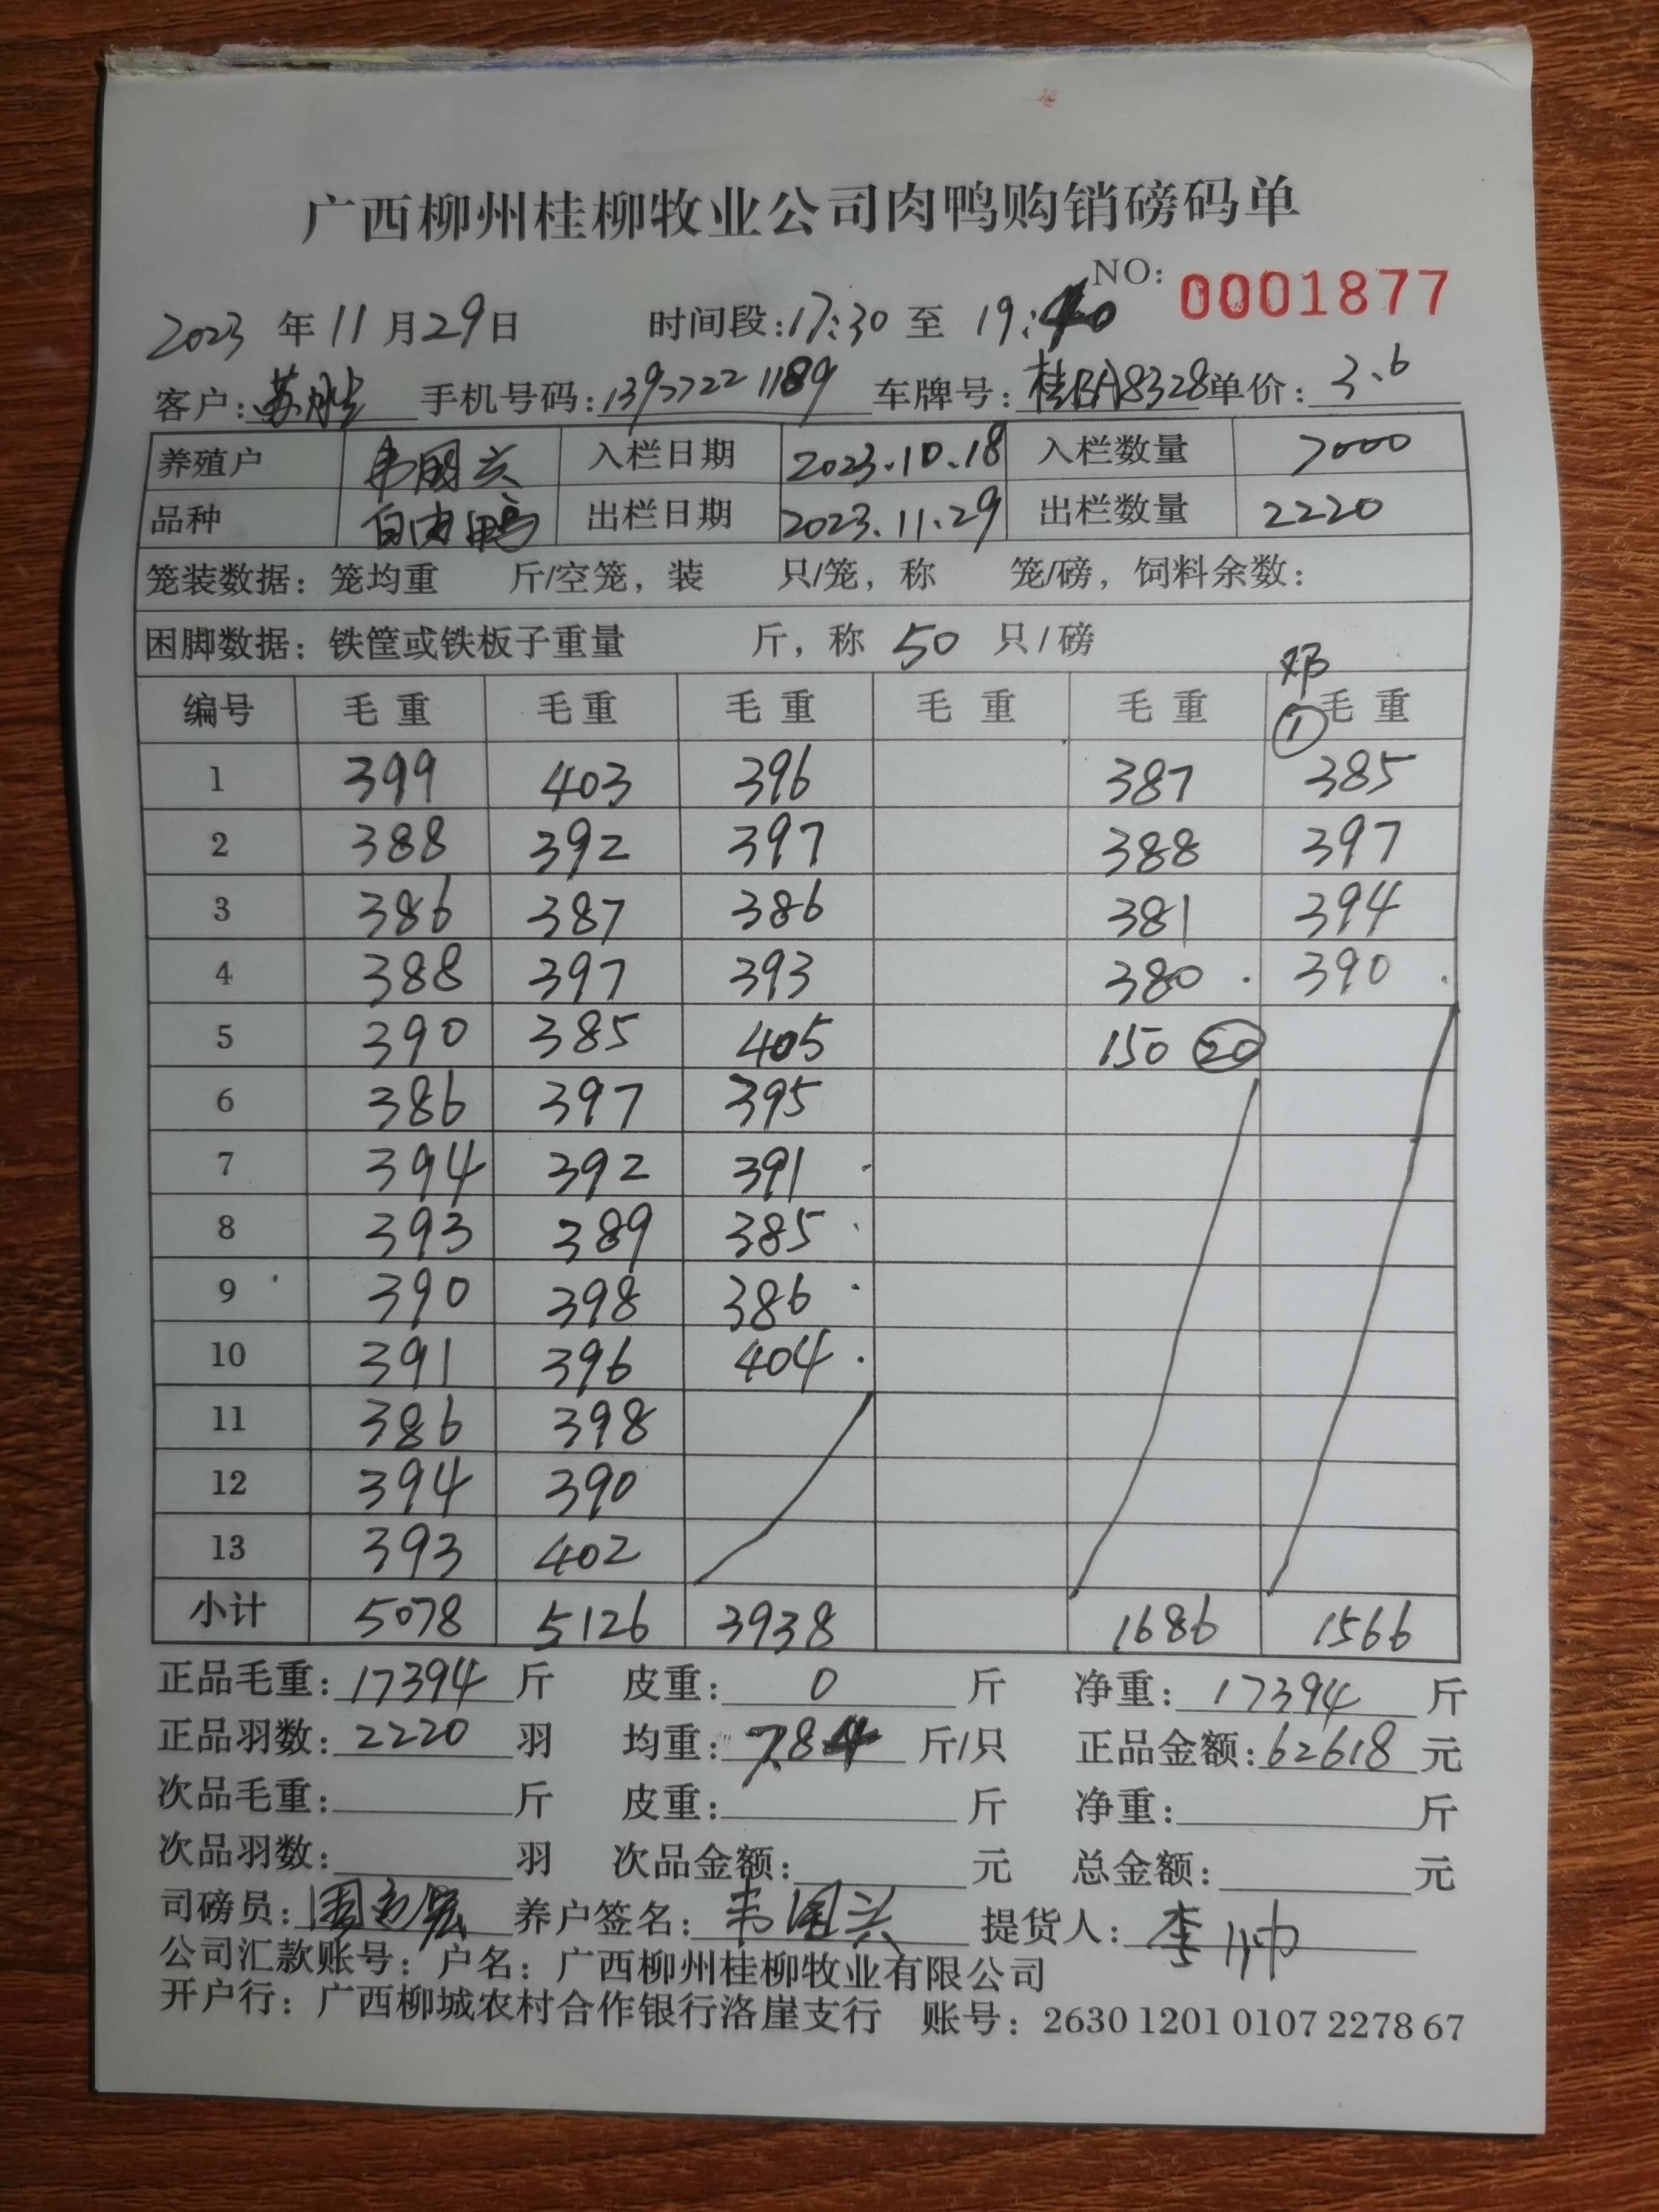 广西柳州桂柳牧业公司肉鸭购销磅码单
NO: 0001877
2023 年 11 月 29 日 时间段: 17:30 至 19:40
客户: 苏 手机号码: 13977221189 车牌号: 桂 8328 单价: 3.6
养殖户 韦国兴 入栏日期 2023.10.18 入栏数量 7000
品种 白肉鸭 出栏日期 2023.11.29 出栏数量 2220
笼装数据: 笼均重 斤/空笼, 装 只/笼, 称 笼/磅, 饲料余数:
困脚数据: 铁筐或铁板子重量 斤, 称 50 只/磅
邓
编号 毛重 毛重 毛重 毛重 毛重 ① 毛重
1 399 403 396 387 385
2 388 392 397 388 397
3 386 387 386 381 394
4 388 397 393 380 . 390 .
5 390 385 405 150 ⑳
6 386 397 395
7 394 392 391
8 393 389 385
9 390 398 386
10 391 396 404
11 386 398
12 394 390
13 393 402
小计 5078 5126 3938 1686 1566
正品毛重: 17394 斤 皮重: 0 斤 净重: 17394 斤
正品羽数: 2220 羽 均重: 7.84 斤/只 正品金额: 62618 元
次品毛重: 斤 皮重: 斤 净重: 斤
次品羽数: 羽 次品金额: 元 总金额: 元
司磅员: 养户签名: 韦国兴 提货人: 李帅
公司汇款账号: 户名: 广西柳州桂柳牧业有限公司
开户行: 广西柳城农村合作银行洛崖支行 账号: 2630 1201 0107 2278 67